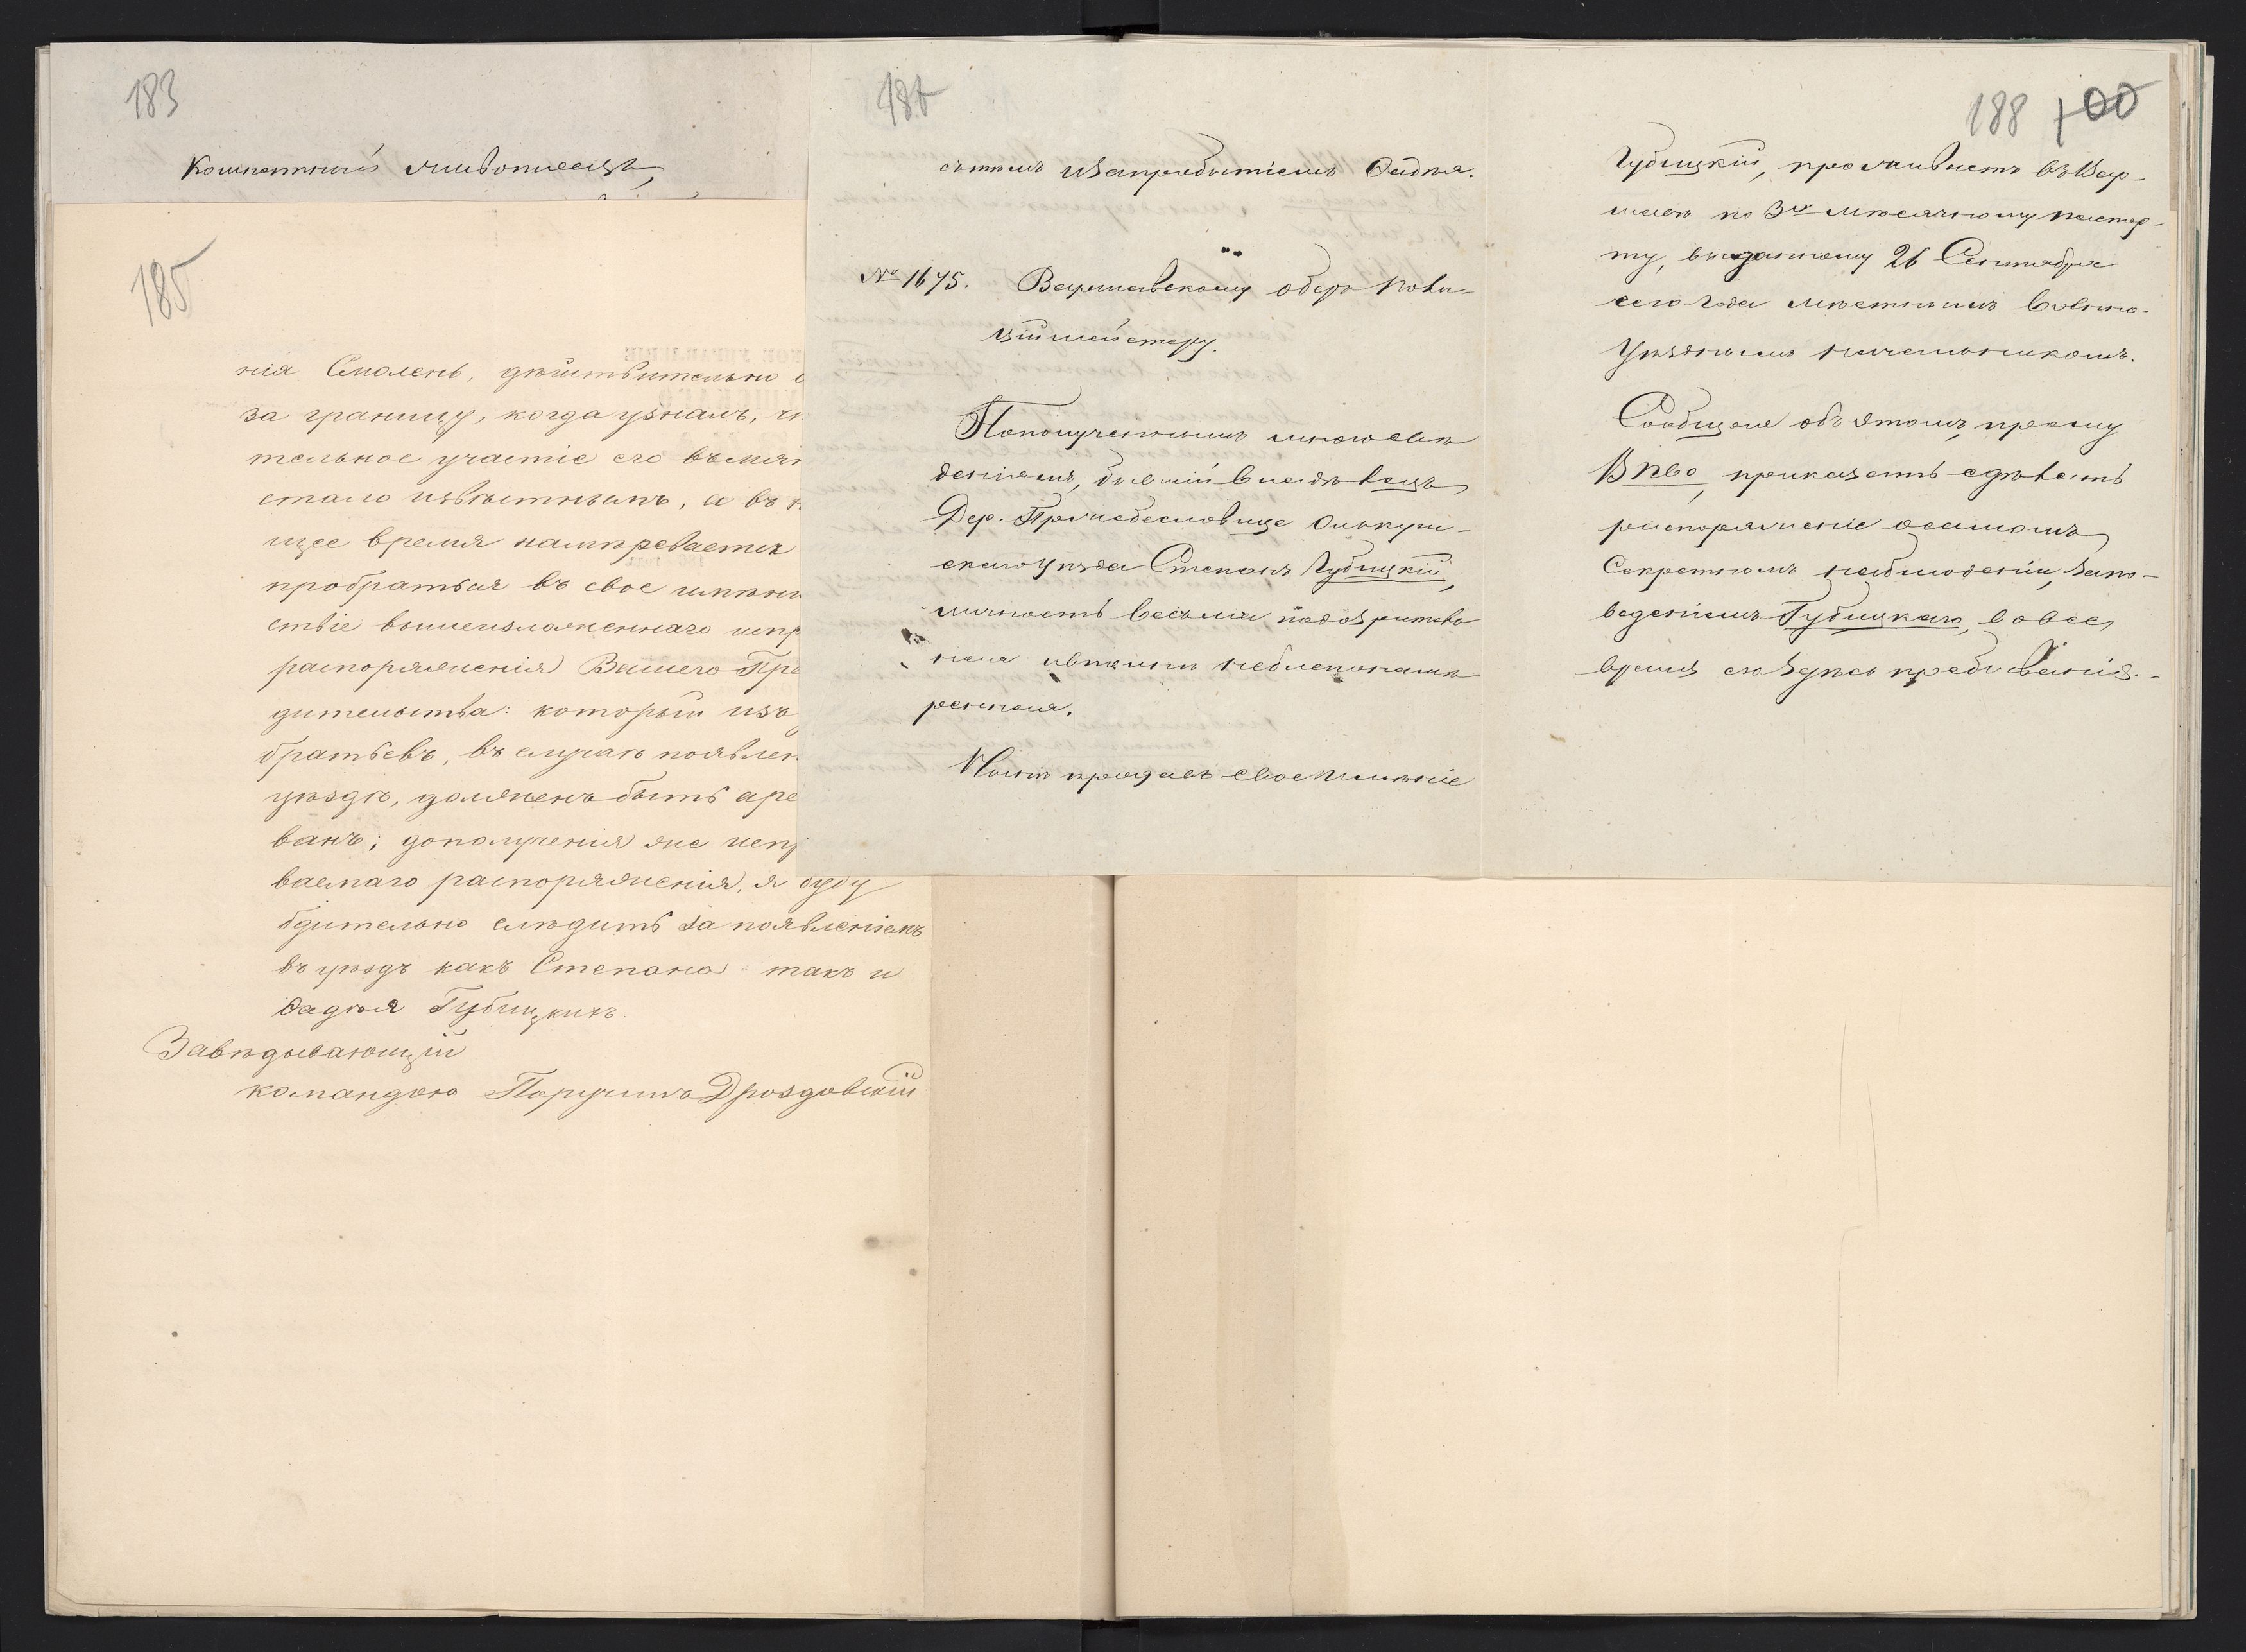 183
Комнатный живописецъ,
185
нія Смолень, дѣйствительно
за границу, когда узналъ, чт
тельное участіе его въ мят
стало извѣстнымъ, а въ н
щее время намѣревается
пробраться въ свое имѣні
ствіе вышеизложеннаго испр
распоряженія Вашего Пре
дительства: который изъ
братьевъ, въ случаѣ появлен
уѣздѣ, долженъ быть аре
ванъ; до полученія же испр
ваемаго распоряженія, я буду
бдительно слѣдить за появленіемъ
въ уѣздъ какъ Степана такъ и
Фадѣя Губицкихъ.
Завѣдывающій
командою Поручикъ Дроздовскій
186
и за прибытіемъ Фадѣя.
№ 1675. Варшавскому оберъ поли-
ціймейстеру.
По полученнымъ мною свѣ
деніямъ, бывшій владѣлецъ
Дер. Олькуш-
скаго уѣзда Степанъ Губицкій,
личность весьма подозритель
ная и втайнѣ неблагонамѣ
ренная.
Нынѣ продавъ свое имѣніе
188 100
Губицкій, проживаетъ въ Вар-
шавѣ по 3хъ мѣсячному паспор-
ту, выданному 26 Сентября
сего года мѣстнымъ Военно-
Уѣзднымъ начальникомъ.
Сообщая объ этомъ, прошу
В ПВО, приказать сдѣлать
распоряженіе о самомъ
Секретномъ наблюденіи, за по-
веденіемъ Губицкаго, во все
время его здѣсь пребыванія.